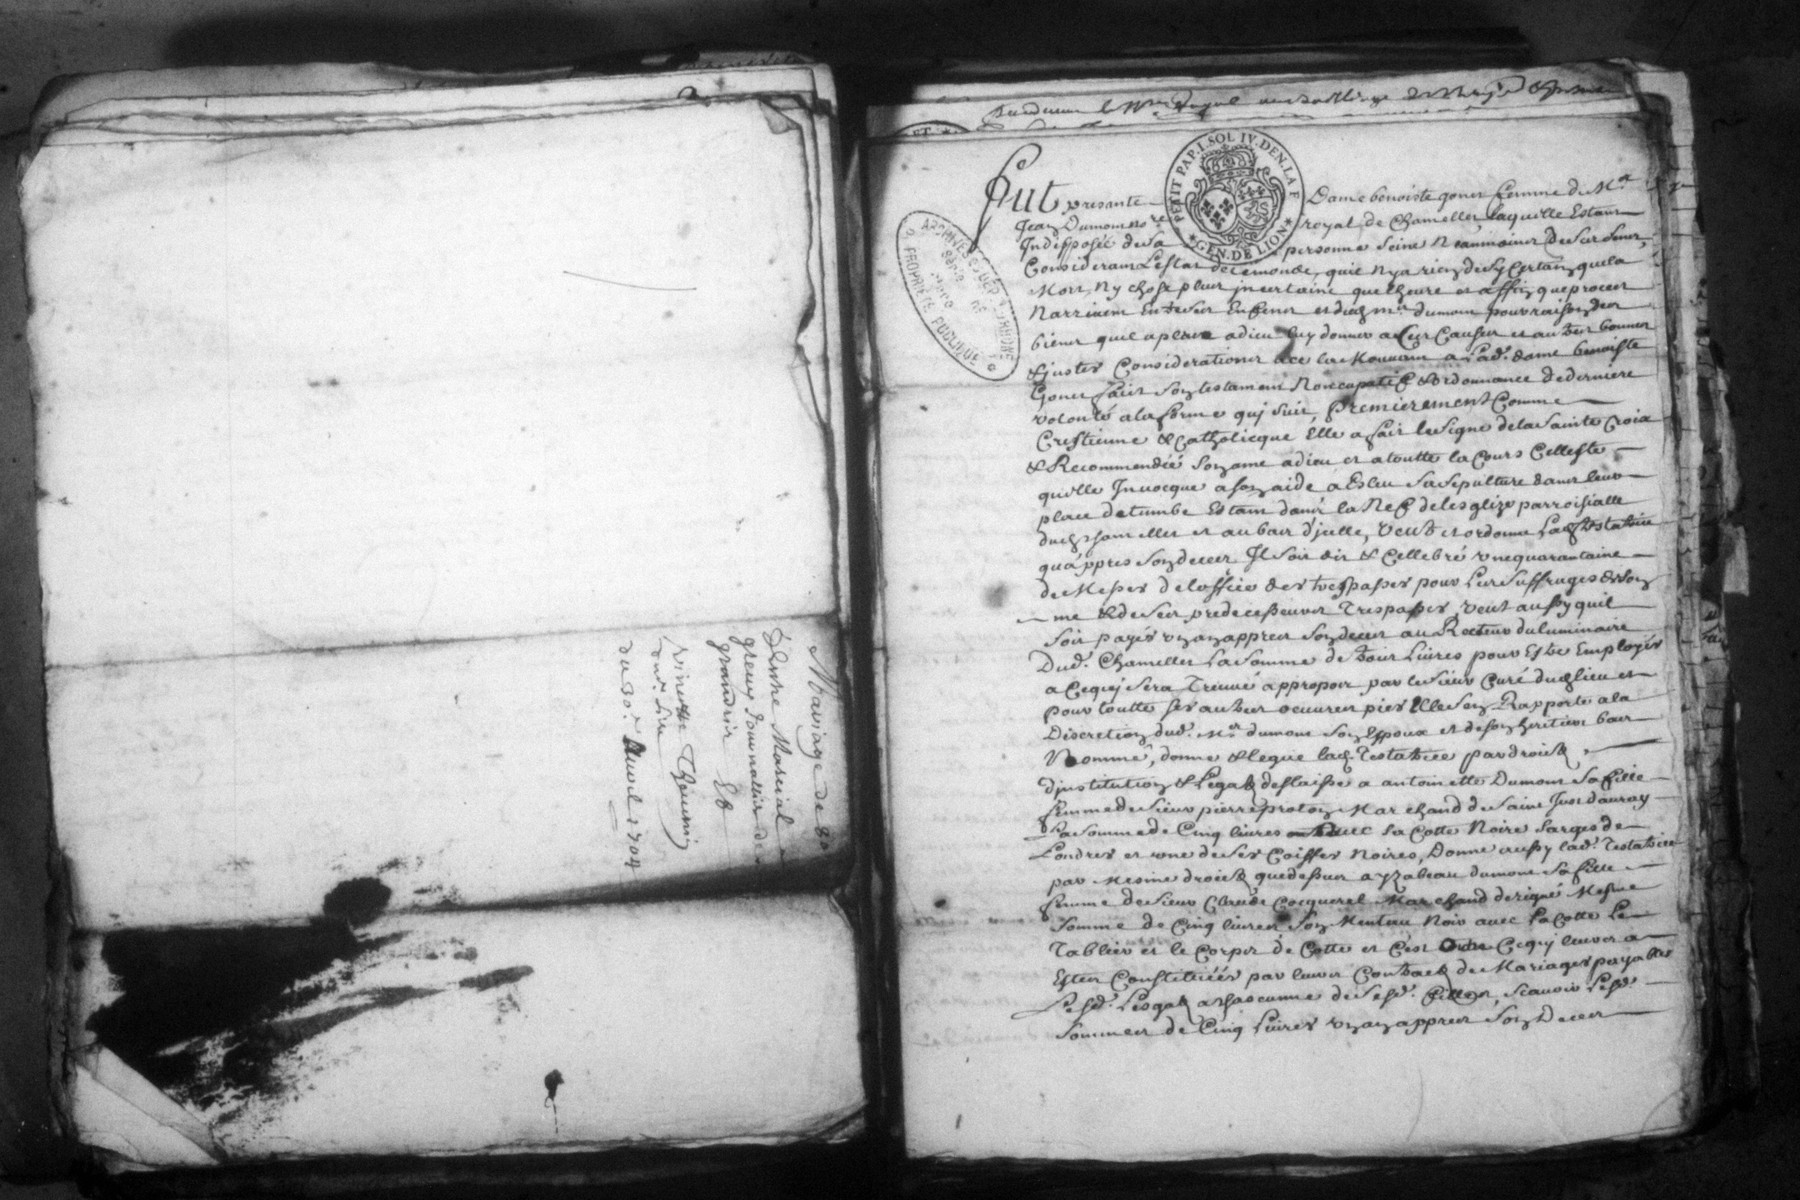 Mariage de
Marcial
greux Journallier de
grandrix Et
Theuenin
du 30e Auvril 1704
PETIT PAP. 1. SOL IV. DEN. LA F
GEN. DE LION
ARCHIVES DU DEP. DU RHONE
PROPRIETE PUBLIQUE
Fut presente Dame benoiste gonet femme de Me
Jean Dumont nore royal de Chamellet, laquelle Estant
Indispposée de sa personne seine neanmoiner de ses sener,
Considerant Lestat de ce monde, quil ny a rien de sy Certain que la
Mort, ny chose pluer jncertaine que lheure et affin que procer
Narrivent Entre ses Enfener et dict mre dumont pour raison der
biener quil a pleu a dieu luy donner a Cer Causer et autrer bonner
& juster Considerationer a ce la Mouvant a Lad. dame benoiste
Gonet fait son testament Noncupatif & ordonnance de derniere
volonté a la forme quj suit, Premierement Comme
Crestienne & Catholicque Elle a fait le signe de la Sainte Croix
& Recommendéé son ame a dieu et a toutte la Cours Celleste
quelle Jnvocque a son aide a Esleu sa sepulture dans leur
place de tumbe Estant dans la Nef de lesglize parroisialle
dud. Chamellet et au bas d'jcelle, Veut et ordonne Lad. testatrice
qua'ppres son decer Il soit dit & Cellebré une quarantaine
de Messes de loffice der trespasser pour Les suffrages de son
me & de ses predecesseurer Trespasser Veut aussy quil
soit payer un an appres son decer au Recteur du luminaire
Dud. Chamellet La somme de trois Livres pour Estre Employér
a Cequj sera Treuvé a propoer par le sieur Curé dud. lieu et
pour toutte ses autrer oeuvrer pier Elle sen Rapporte a la
Discretion dud. Mre dumont son Espoux et de son heritier bas
Nommé, donne & legue lad. Testatrice par droict
djnstitution & Legat deslaissé a antoinette Dumont sa fille
femme de sieur pierre proton Marchand de Saint Just d'avray
La somme de Cinq livres avec sa Cotte Noire sarges de
Londres et une de ses Coiffes Noires, Donne aussy lad. Testatrice
par mesme droict que dessus a yzabeau dumont sa fille
femme de sieur Claude Cocquerel Marchand de rigné Mesme
somme de Cinq livres son Menteau Noir avec la Cotte Le
Tablier et le Corper de Cotte et C'est Outre Cequj leur a
Ester Constituéér par leurer Contractz de Mariages payables
Lesd. Legatz a chascunne de sesd. filles, scavoir Lesd.
sommes de Cinq Livres un an appres son Decer